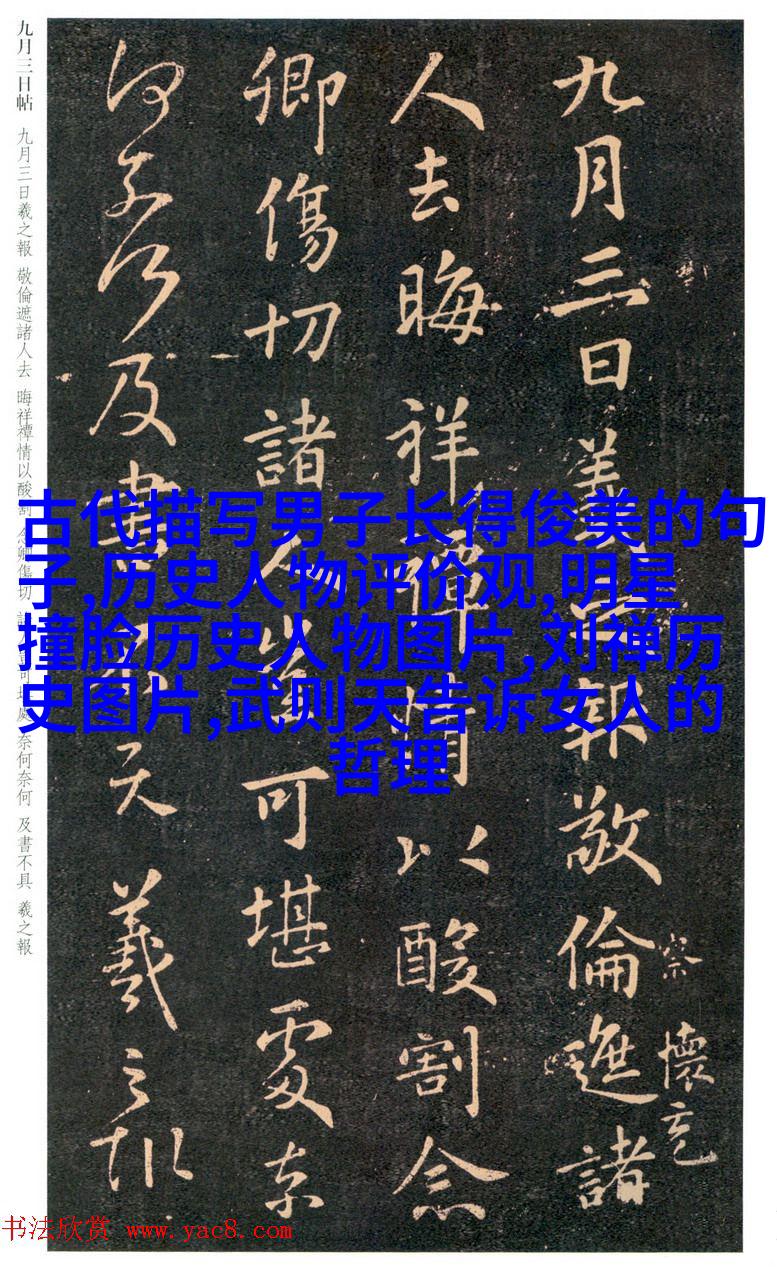 九月三日羲之報敬倫遮諸
察 懷充
人去晦祥禫情以酸割念
卿傷切諸人豈可堪處奈
何奈何及書不具羲之報
九月三日帖 九月三日羲之報 敬倫遮諸人去 晦祥禫情以酸割 念卿傷切 諸人豈可堪處 奈何奈何 及書不具 羲之報
古代描写男子长得俊美的句
子,历史人物评价观,明星
撞脸历史人物图片,刘禅历
史图片,武则天告诉女人的
哲理
书法欣赏 www.yac8.com